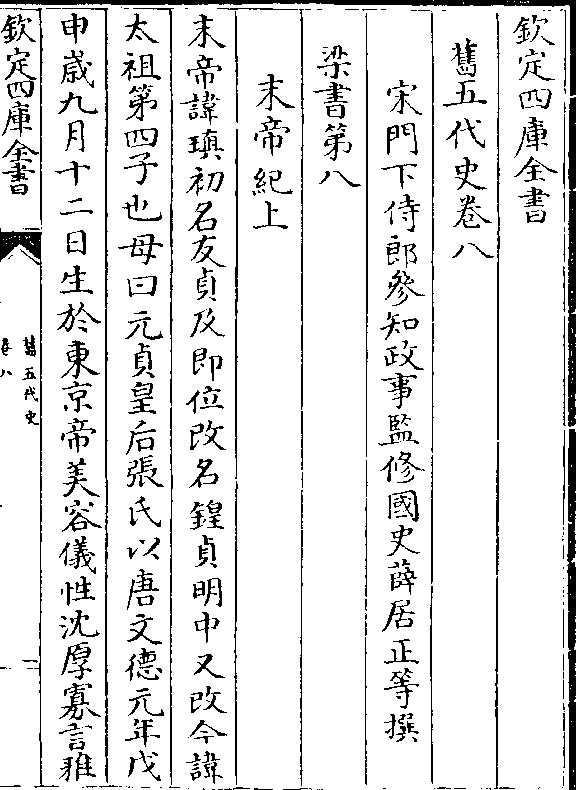 欽定四庫全書
舊五代史卷八
宋門下侍郎參知政事監修國史薛居正等撰
梁書第八
末帝紀上
末帝諱瑱初名友貞及即位改名鍠貞明中又改今諱
太祖第四子也母曰元貞皇后張氏以唐文德元年戊
申歲九月十二日生於東京帝美容儀性沈厚寡言雅
欽定四庫全書
舊五代史
卷八